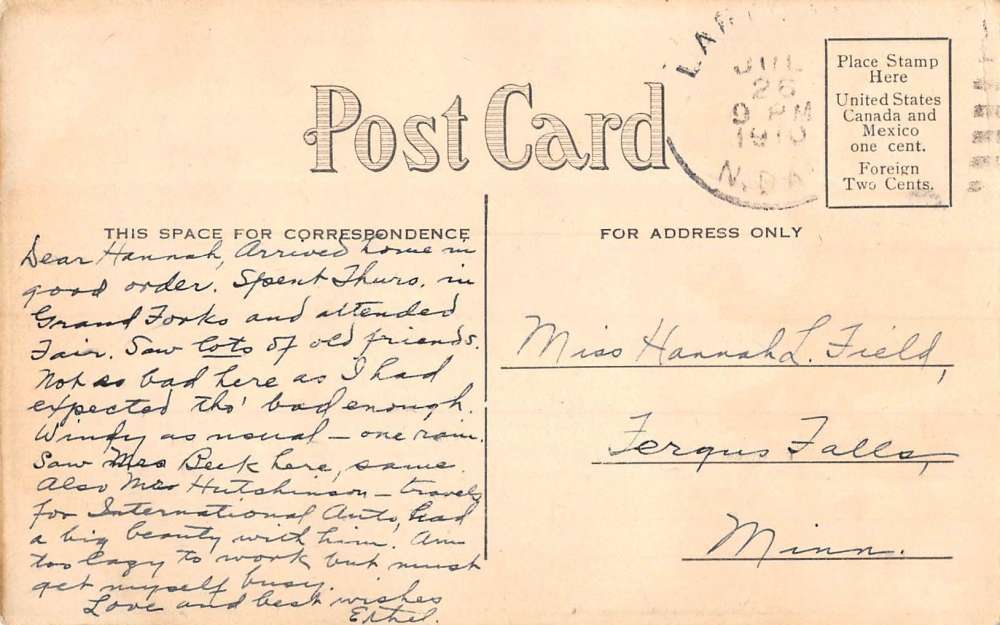 Post Card
LA
JUL
26
9 PM
1910
N. DAK
Place Stamp
Here
United States
Canada and
Mexico
one cent.
Foreign
Two Cents.
THIS SPACE FOR CORRESPONDENCE
Dear Hannah, Arrived home in
good order. Spent Thurs. in
Grand Forks and attended
Fair. Saw lots of old friends.
Not so bad here as I had
expected tho' bad enough.
Windy as usual – one rain.
Saw Mrs Beck here, same.
Also Mrs Hutchinson – travels
for International Auto, had
a big beauty with him. Am
too lazy to work but must
get myself busy.
Love and best wishes
Ethel.
FOR ADDRESS ONLY
Miss Hannah L. Field,
Fergus Falls,
Minn.